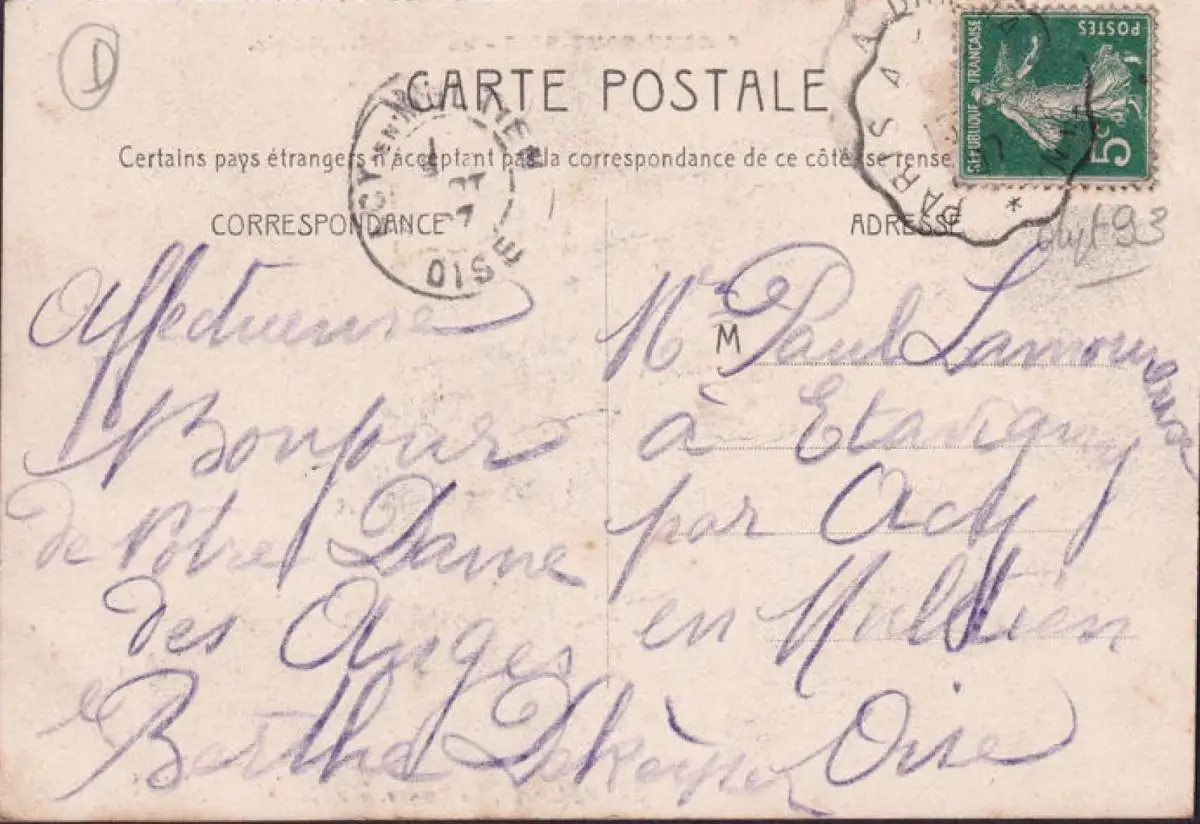 D
CARTE POSTALE
Certains pays étrangers n'acceptant pas la correspondance de ce côté se rense
CORRESPONDANCE
ADRESSE
RÉPUBLIQUE FRANÇAISE
POSTES
5c
PARIS A
17
*
EN MULTIEN
OISE
93
Affectueuse
Bonjour
de Notre Dame
des Anges
Berthe Dekeyser
Mr Paul Lamoureuse
M
à Etavigny
par Acy
en Multien
Oise